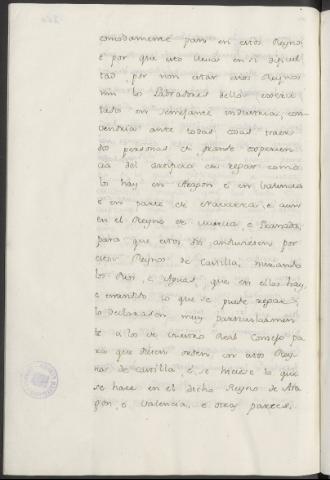 comodamente para en estos Reynos
e por que esto lleva en si dificul
tad, por non estar estos Reynos
nin los Labradores dellos exerci
tados en semejante industria, con
vendria ante todas cosas traer
dos personas de grande esperien
cia del artificio de regar como
lo hay en Aragon e en Valencia
e en parte de Navarra e aun
en el Reyno de Murcia, e Granada,
para que estos dos anduviesen por
estos Reynos de Castilla, mirando
los Rios, e Aguas, que en ellos hay,
e mirando lo que se puede regar,
lo declarasen muy particularmen
te a los de vuestro Real Consejo pa
ra que diesen orden en estos Rey
nos de Castilla, e se hiciese lo que
se hace en el dicho Reyno de Ara
gon, e Valencia, e otras partes.